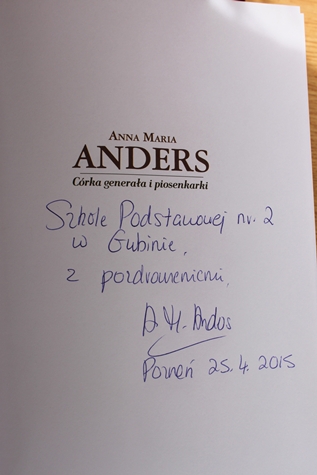 ANNA MARIA
ANDERS
Córka generała i piosenkarki
Szkole Podstawowej nr. 2
w Gubinie,
z pozdrowieniami,
A. M. Anders
Poznań 25.4.2015